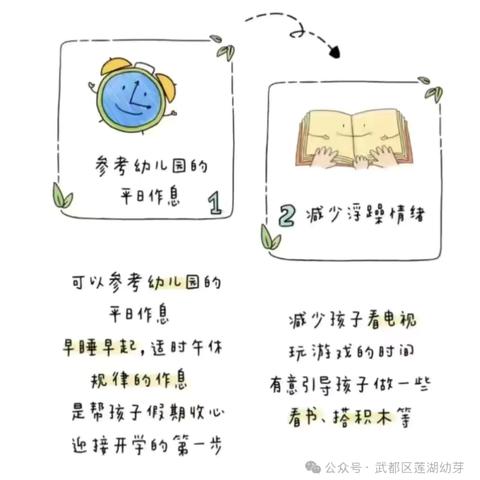 参考幼儿园的
平日作息
1
2 减少浮躁情绪
可以参考幼儿园的
平日作息
早睡早起,适时午休
规律的作息
是帮孩子假期收心
迎接开学的第一步
减少孩子看电视
玩游戏的时间
有意引导孩子做一些
看书、搭积木等
公众号·武都区莲湖幼芽